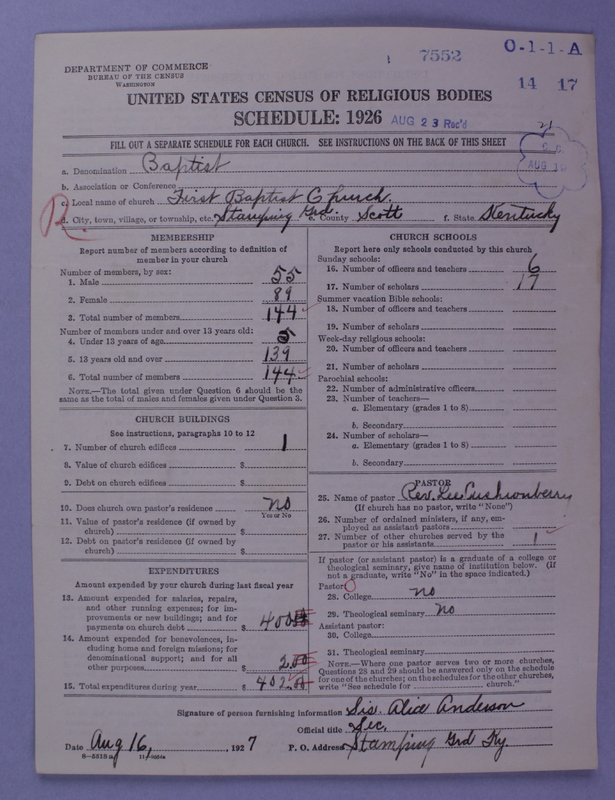 7552
O-1-1-A
DEPARTMENT OF COMMERCE
BUREAU OF THE CENSUS
WASHINGTON
14 17
UNITED STATES CENSUS OF RELIGIOUS BODIES
SCHEDULE: 1926
AUG 23 Rec'd
FILL OUT A SEPARATE SCHEDULE FOR EACH CHURCH. SEE INSTRUCTIONS ON THE BACK OF THIS SHEET
a. Denomination Baptist
b. Association or Conference
c. Local name of church First Baptist Church.
d. City, town, village, or township, etc. Stamping Grd. e. County Scott f. State Kentucky
MEMBERSHIP
Report number of members according to definition of
member in your church
Number of members, by sex:
1. Male 55
2. Female 89
3. Total number of members 144
Number of members under and over 13 years old:
4. Under 13 years of age 5
5. 13 years old and over 139
6. Total number of members 144
NOTE.—The total given under Question 6 should be the
same as the total of males and females given under Question 3.
CHURCH BUILDINGS
See instructions, paragraphs 10 to 12
7. Number of church edifices 1
8. Value of church edifices $
9. Debt on church edifices $
10. Does church own pastor's residence no
Yes or No
11. Value of pastor's residence (if owned by
church) $
12. Debt on pastor's residence (if owned by
church) $
EXPENDITURES
Amount expended by your church during last fiscal year
13. Amount expended for salaries, repairs,
and other running expenses; for im-
provements or new buildings; and for
payments on church debt $ 400
14. Amount expended for benevolences, in-
cluding home and foreign missions; for
denominational support; and for all
other purposes $ 2.00
15. Total expenditures during year $ 402.00
CHURCH SCHOOLS
Report here only schools conducted by this church
Sunday schools:
16. Number of officers and teachers 6
17. Number of scholars 17
Summer vacation Bible schools:
18. Number of officers and teachers
19. Number of scholars
Week-day religious schools:
20. Number of officers and teachers
21. Number of scholars
Parochial schools:
22. Number of administrative officers
23. Number of teachers—
a. Elementary (grades 1 to 8)
b. Secondary
24. Number of scholars—
a. Elementary (grades 1 to 8)
b. Secondary
PASTOR
25. Name of pastor Rev. Lee Cushionberry
(If church has no pastor, write "None")
26. Number of ordained ministers, if any, em-
ployed as assistant pastors
27. Number of other churches served by the
pastor or his assistants 1
If pastor (or assistant pastor) is a graduate of a college or
theological seminary, give name of institution below. (If
not a graduate, write "No" in the space indicated.)
Pastor:
28. College no
29. Theological seminary no
Assistant pastor:
30. College
31. Theological seminary
NOTE.—Where one pastor serves two or more churches,
Questions 28 and 29 should be answered only on the schedule
for one of the churches; on the schedules for the other churches,
write "See schedule for church."
Signature of person furnishing information Sis. Alice Anderson
Official title Sec.
Date Aug 16, 1927 P. O. Address Stamping Grd Ky.